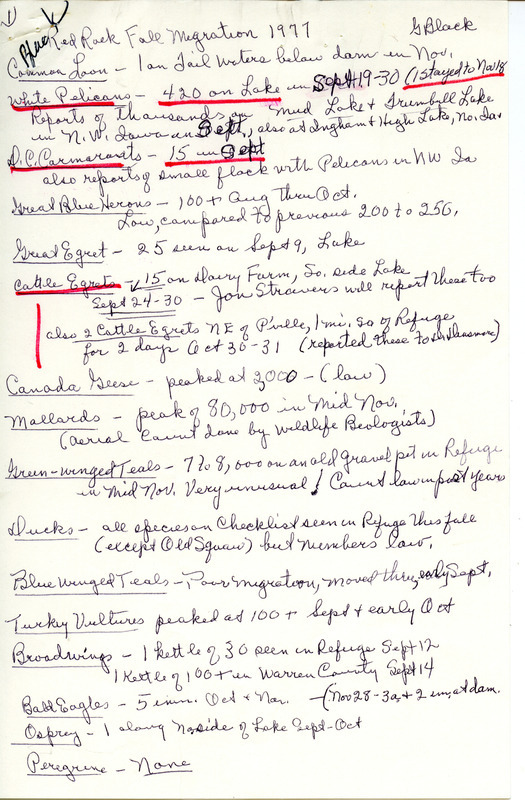 1)
Black
Red Rock Fall Migration 1977 G Black
Common Loon - 1 on Tail Waters below dam in Nov.
White Pelicans - 420 on Lake in Sept 19-30 (1 stayed to Nov 18
Reports of thousands on Mud Lake & Trumbull Lake
in N.W. Iowa in Sept, also at Ingham & High Lake, No. Ia.
D.C. Cormorants - 15 in Sept
also reports of small flock with Pelicans in NW Ia
Great Blue Herons - 100+ Aug thru Oct.
Low, compared to previous 200 to 250.
Great Egret - 25 seen on Sept 9, Lake
Cattle Egrets - 15 on dairy Farm, So. side Lake
Sept 24-30 - Jon Stravers will report these too
also 2 Cattle Egrets NE of P'ville, 1 mi. so of Refuge
for 2 days Oct 30-31 (reported these to Dinsmore)
Canada Geese - peaked at 2,000 - (low)
Mallards - peak of 80,000 in Mid Nov.
(aerial Count done by Wildlife Biologists)
Green-winged Teals - 7 to 8,000 on an old gravel pit in Refuge
in Mid Nov. Very unusual! Count low in past years
Ducks - all species on Checklist seen in Refuge this fall
(except Old Squaw) but numbers low.
Blue Winged Teals - Poor Migration, moved thru, early Sept.
Turkey Vultures peaked at 100+ Sept & early Oct
Broadwings - 1 Kettle of 30 seen in Refuge Sept 12
1 Kettle of 100+ in Warren County Sept 14
Bald Eagles - 5 imm. Oct & Nov. - (Nov 28 - 3 a, & 2 imm, at dam.
Osprey - 1 along No side of Lake Sept-Oct
Peregrine - None